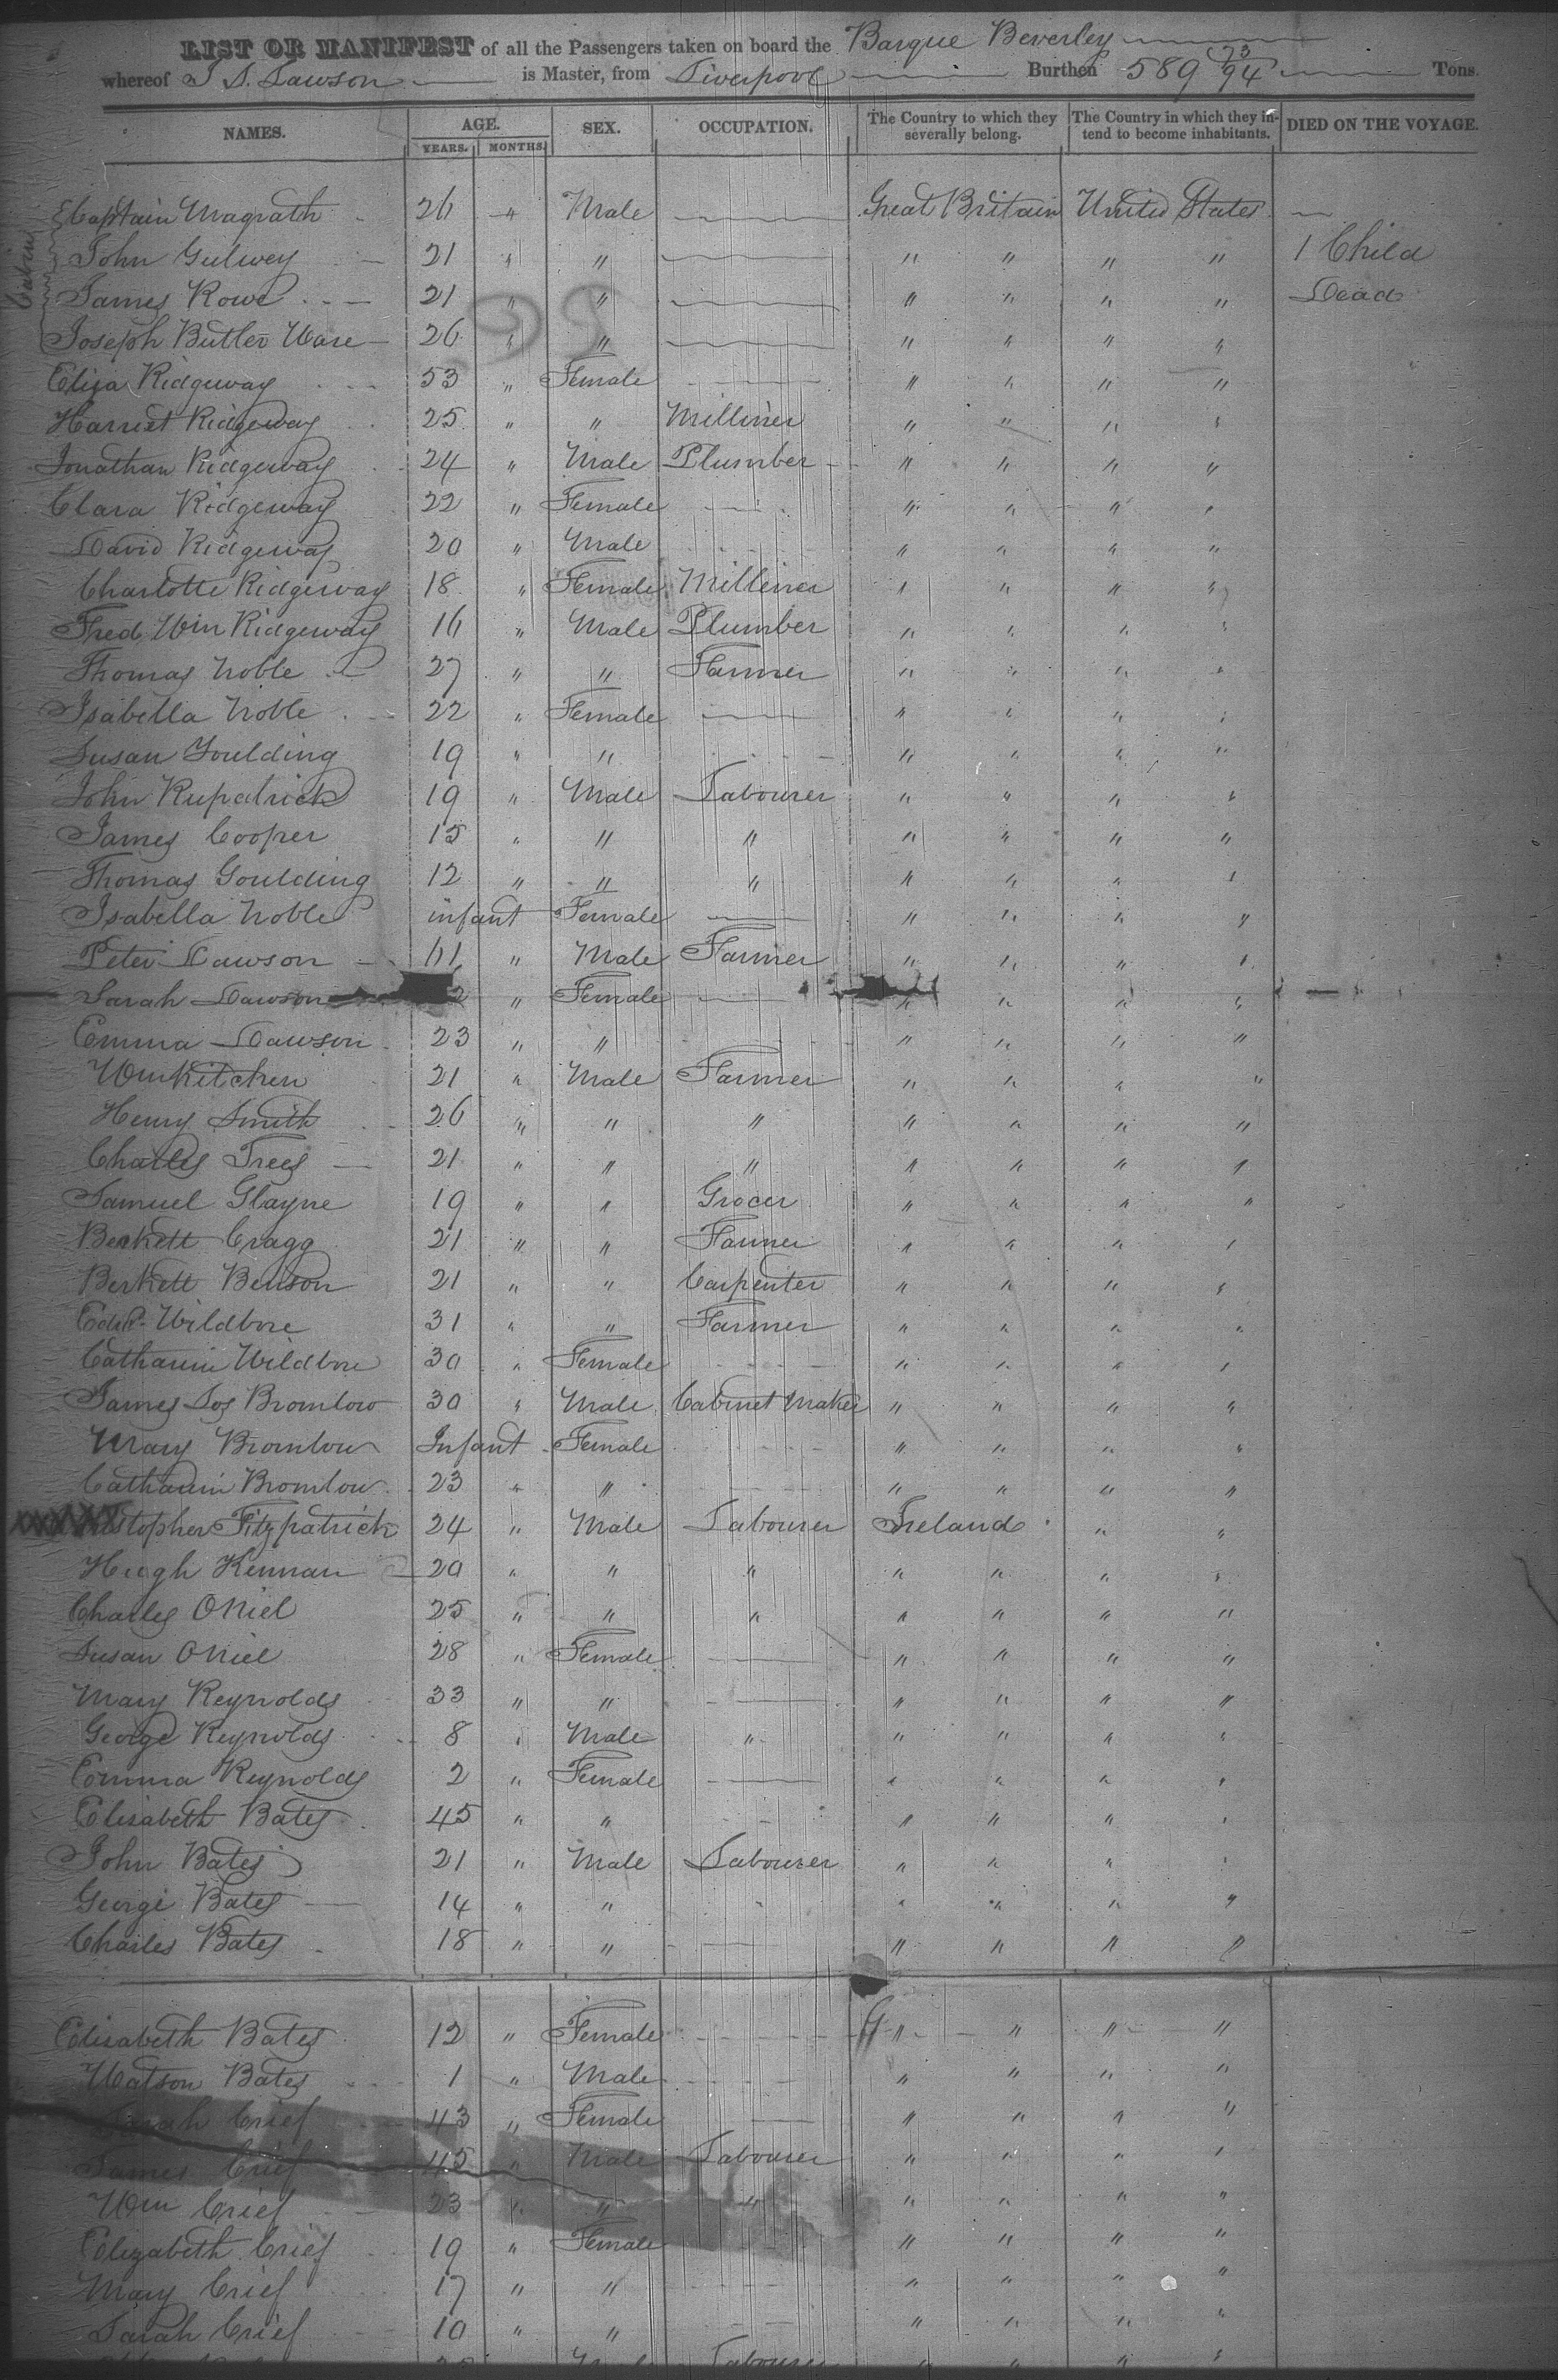 LIST OR MANIFEST of all the Passengers taken on board the Barque Beverley
whereof Dawson is Master, from Liverpool Burthen 589 Tons.
NAMES. AGE. SEX. OCCUPATION. The Country to which they severally belong. The Country in which they intend to become inhabitants. DIED ON THE VOYAGE.
YEARS. MONTHS.
Captain Magrath 26 " Male Great Britain United States
John Gulwey 21 " " " " " " 1 Child
James Rowe 21 " " " " " " Dead
Joseph Butler Ware 26 " " " " " "
Eliza Ridgeway 53 " Female " " " "
Harriet Ridgeway 25 " " Milliner " " " "
Jonathan Ridgeway 24 " Male Plumber " " " "
Clara Ridgeway 22 " Female " " " "
David Ridgeway 20 " Male " " " "
Charlotte Ridgeway 18 " Female Milliner " " " "
Fred Wm Ridgeway 16 " Male Plumber " " " "
Thomas Noble 27 " " Farmer " " " "
Isabella Noble 22 " Female " " " "
Susan Goulding 19 " " " " " "
John 19 " Male Labourer " " " "
James Cooper 15 " " " " " " "
Thomas Goulding 12 " " " " " " "
Isabella Noble infant Female " " " "
Peter Dawson 61 " Male Farmer " " " "
Sarah Dawson " Female " " " "
Emma Dawson 23 " " " " " "
Wm Kitchen 21 " Male Farmer " " " "
Henry Smith 26 " " " " " " "
Charles Trees 21 " " " " " " "
Samuel Glayne 19 " " Grocer " " " "
Berkett Cragg 21 " " Farmer " " " "
Berkett Benson 21 " " Carpenter " " " "
Edwd Wildbore 31 " " Farmer " " " "
Catharine Wildbore 30 " Female " " " "
James Jos Bromlow 30 " Male Cabinet Maker " " " "
Mary Bromlow Infant Female " " " "
Catharine Bromlow 23 " " " " " "
Christopher Fitzpatrick 24 " Male Labourer Ireland " "
Hugh Kennan 20 " " " " " " "
Charles ONiel 25 " " " " " " "
Susan ONiel 28 " Female " " " "
Mary Reynolds 33 " " " " " "
George Reynolds 8 " Male " " " " "
Emma Reynolds 2 " Female " " " "
Elisabeth Bates 45 " " " " " "
John Bates 21 " Male Labourer " " " "
George Bates 14 " " " " " "
Charles Bates 18 " " " " " "
Elisabeth Bates 12 " Female " " " "
Watson Bates 1 " Male " " " "
Sarah Crief 43 " Female " " " "
James Crief 45 " Male Labourer " " " "
Wm Crief 23 " " " " " " "
Elizabeth Crief 19 " Female " " " "
Mary Crief 17 " " " " " "
Sarah Crief 10 " " " " " "
Labourer " " " "